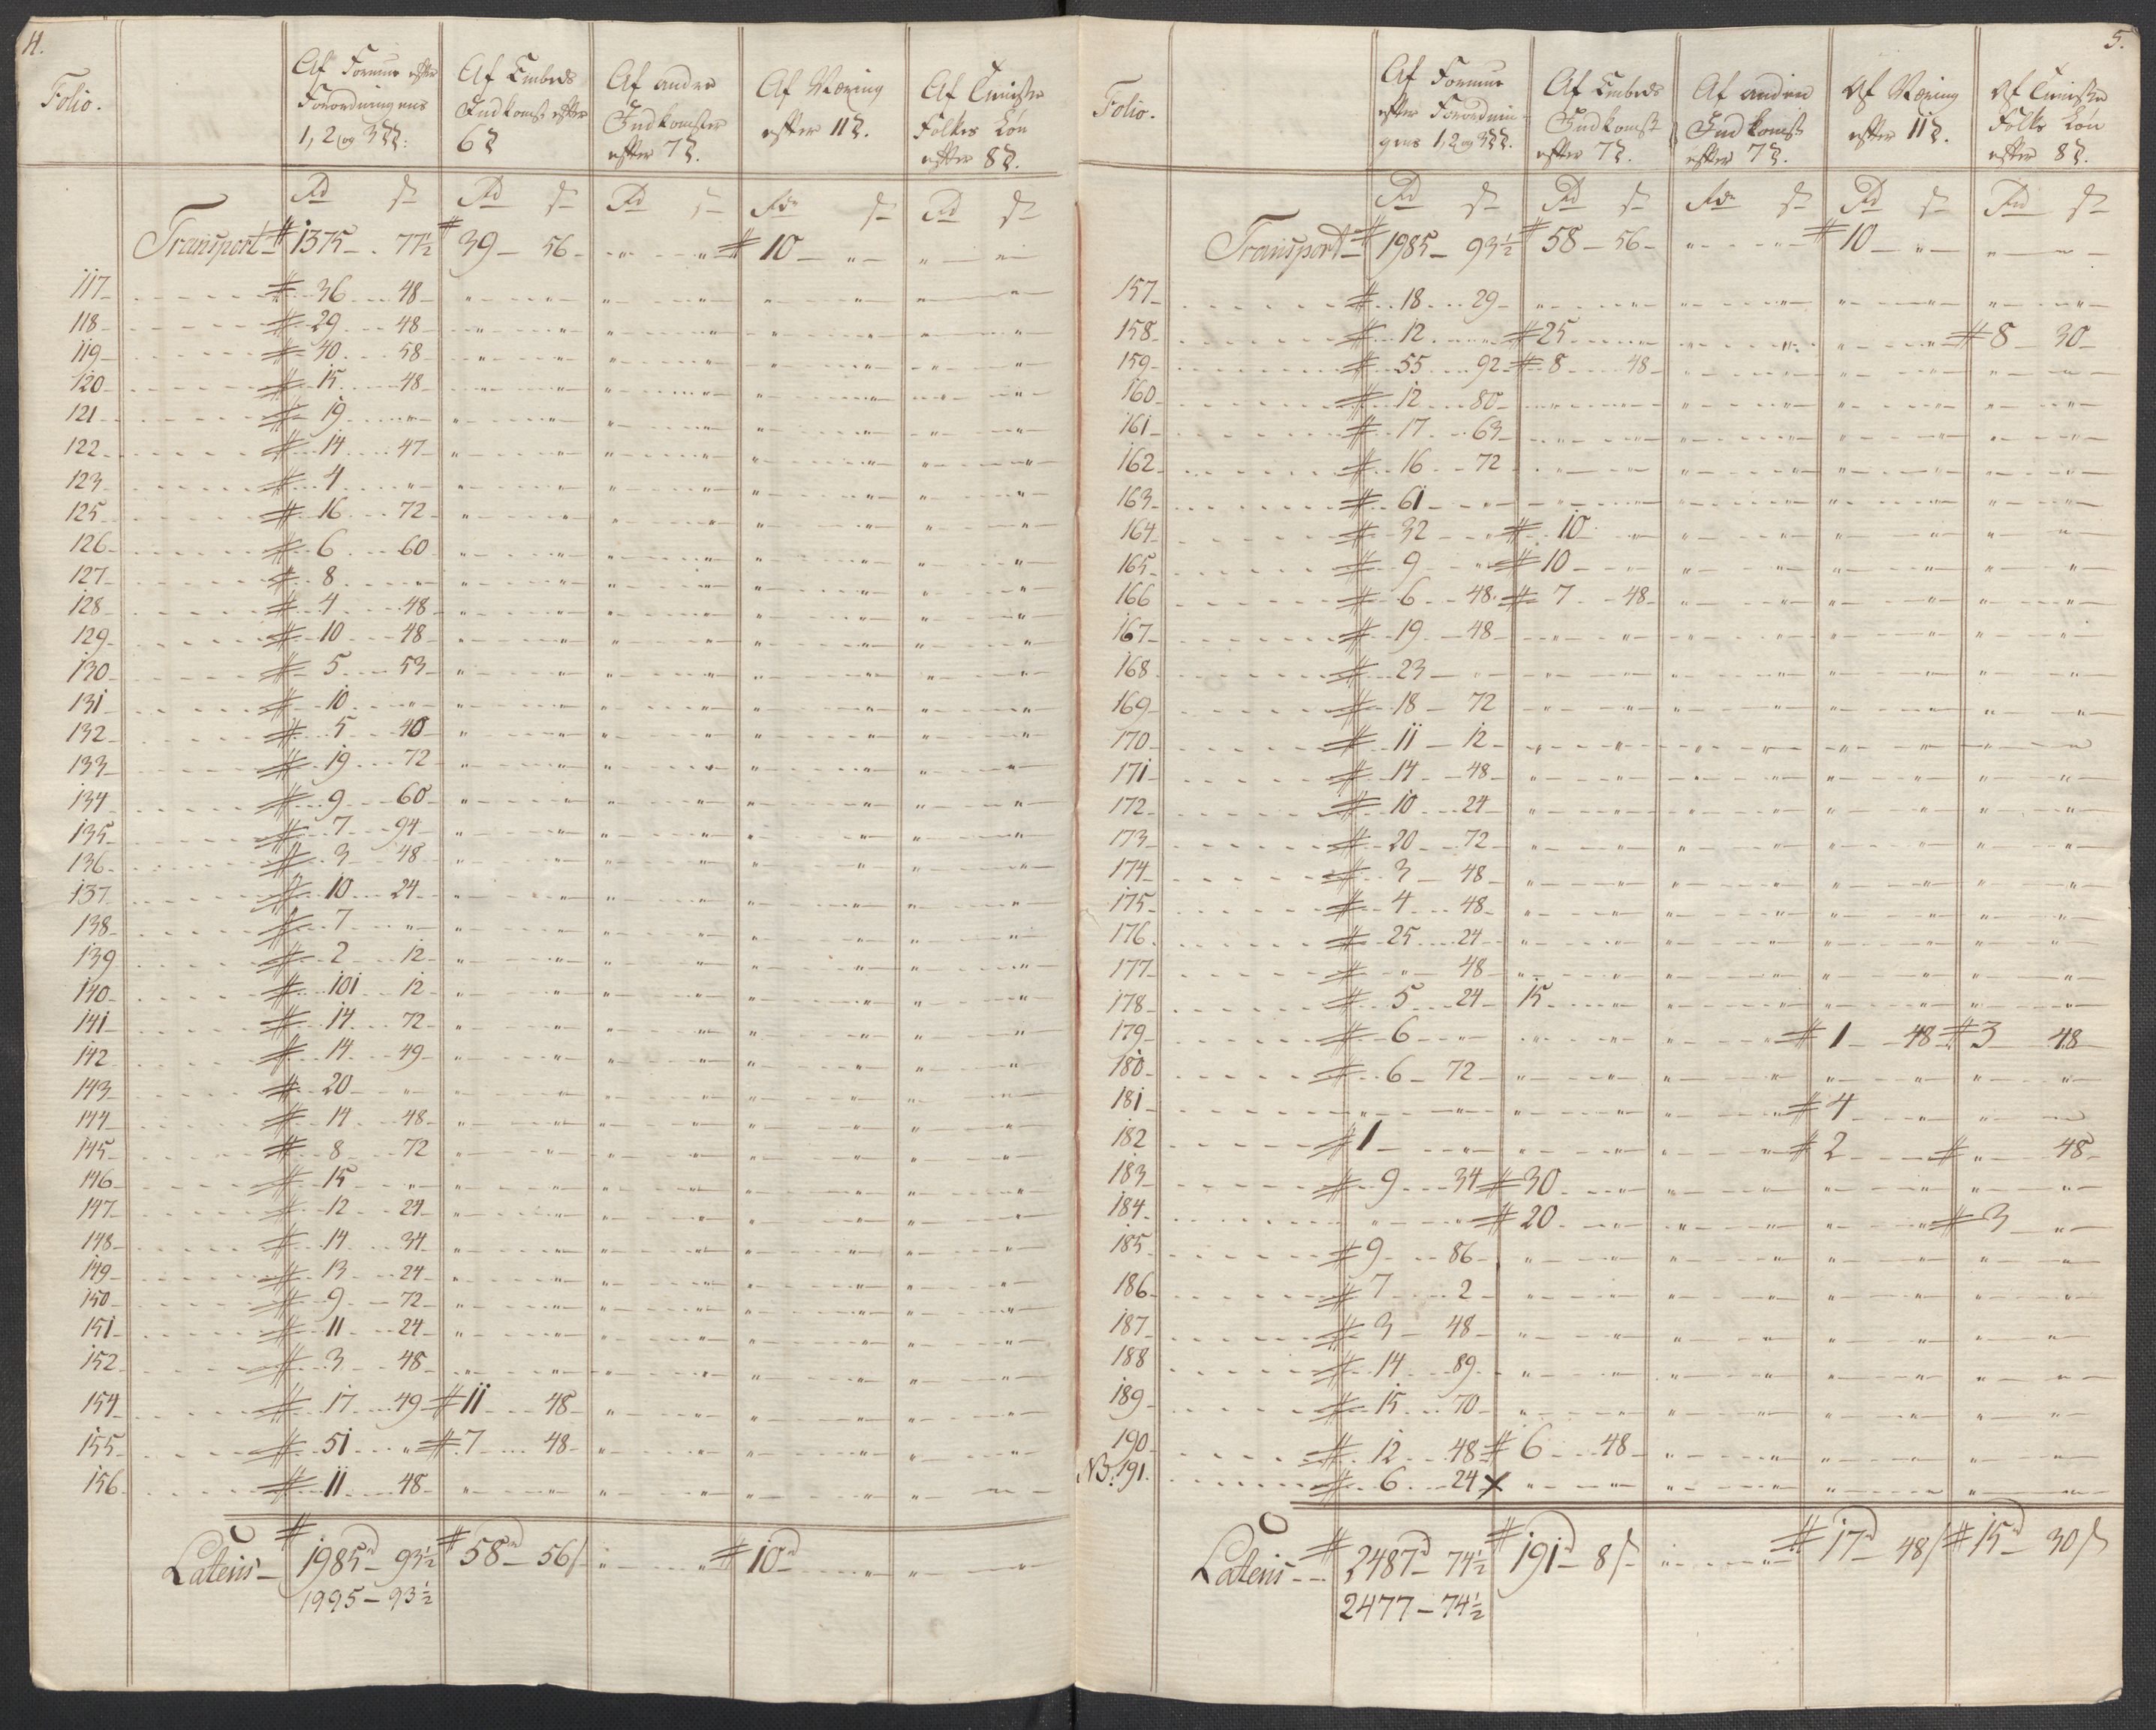 4.
Folio.
Af Formue efter Forordningens 1, 2 og 3 §§:
Af Embeds Indkomst efter 6 §
Af andre Indkomster efter 7 §.
Af Næring efter 11 §.
Af Tieniste Folkes Løn efter 8 §.
Rd s Rd s Rd s Rdr s Rd s
Transport # 1375 - 77½ # 39 - 56 - " " # 10 - " " "
117 # 36 48 " " " " " " " "
118 # 29 48 " " " " " " " "
119 # 40 58 " " " " " " " "
120 # 15 48 " " " " " " " "
121 # 19 " " " " " " " " "
122 # 14 47 " " " " " " " "
123 # 4 " " " " " " " " "
125 # 16 72 " " " " " " " "
126 # 6 60 " " " " " " " "
127 # 8 " " " " " " " " "
128 # 4 48 " " " " " " " "
129 # 10 48 " " " " " " " "
130 # 5 53 " " " " " " " "
131 # 10 " " " " " " " " "
132 # 5 40 " " " " " " " "
133 # 19 72 " " " " " " " "
134 # 9 60 " " " " " " " "
135 # 7 94 " " " " " " " "
136 # 3 48 " " " " " " " "
137 # 10 24 " " " " " " " "
138 # 7 " " " " " " " " "
139 # 2 12 " " " " " " " "
140 # 101 12 " " " " " " " "
141 # 14 72 " " " " " " " "
142 # 14 49 " " " " " " " "
143 # 20 " " " " " " " " "
144 # 14 48 " " " " " " " "
145 # 8 72 " " " " " " " "
146 # 15 " " " " " " " " "
147 # 12 24 " " " " " " " "
148 # 14 34 " " " " " " " "
149 # 13 24 " " " " " " " "
150 # 9 72 " " " " " " " "
151 # 11 24 " " " " " " " "
152 # 3 48 " " " " " " " "
154 # 17 49 # 11 48 " " " " " "
155 # 51 " # 7 48 " " " " " "
156 # 11 48 " " " " " " " "
Lateris # 1985 - 93½ # 58 - 56 s " " # 10 " " "
1995 - 93½
5.
Folio.
Af Formue efter Forordningens 1, 2 og 3 §§.
Af Embeds Indkomst efter 7 §.
Af anden Indkomst efter 7 §.
Af Næring efter 11 §.
Af Tieniste Folks Løn efter 8 §.
Rd s Rd s Rdr s Rd s Rd s
Transport # 1985 - 93½ # 58 - 56 - " " # 10 - " " "
157 # 18 29 " " " " " " " "
158 # 12 " # 25 " " " " " # 8 30
159 # 55 92 # 8 48 " " " " " "
160 # 12 80 " " " " " " " "
161 # 17 63 " " " " " " " "
162 # 16 72 " " " " " " " "
163 # 61 " " " " " " " " "
164 # 32 " # 10 " " " " " " "
165 # 9 " # 10 " " " " " " "
166 # 6 48 # 7 48 " " " " " "
167 # 19 48 " " " " " " " "
168 # 23 " " " " " " " " "
169 # 18 72 " " " " " " " "
170 # 11 12 " " " " " " " "
171 # 14 48 " " " " " " " "
172 # 10 24 " " " " " " " "
173 # 20 72 " " " " " " " "
174 # 3 48 " " " " " " " "
175 # 4 48 " " " " " " " "
176 # 25 24 " " " " " " " "
177 # " 48 " " " " " " " "
178 # 5 24 15 " " " " " " "
179 # 6 " " " " " # 1 48 # 3 48
180 # 6 72 " " " " " " " "
181 " " " " " " # 4 " " "
182 # 1 " " " " " # 2 # " 48
183 # 9 34 # 30 " " " " " " "
184 " " # 20 " " " " " # 3 "
185 # 9 86 " " " " " " " "
186 # 7 2 " " " " " " " "
187 # 3 48 " " " " " " " "
188 # 14 89 " " " " " " " "
189 # 15 70 " " " " " " " "
190 # 12 48 # 6 48 " " " " " "
NB. 191. # 6 24 x " " " " " " " "
Lateris # 2487 - 74½ # 191 - 8 s " " # 17 48 s # 15 30 s
2477 - 74½